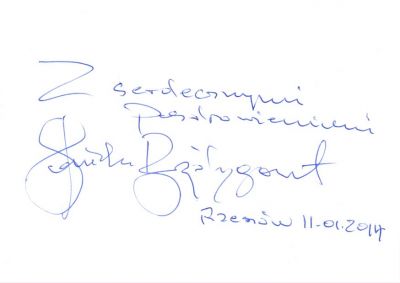 Z serdecznymi
Pozdrowieniami
Rzeszów 11.01.2014